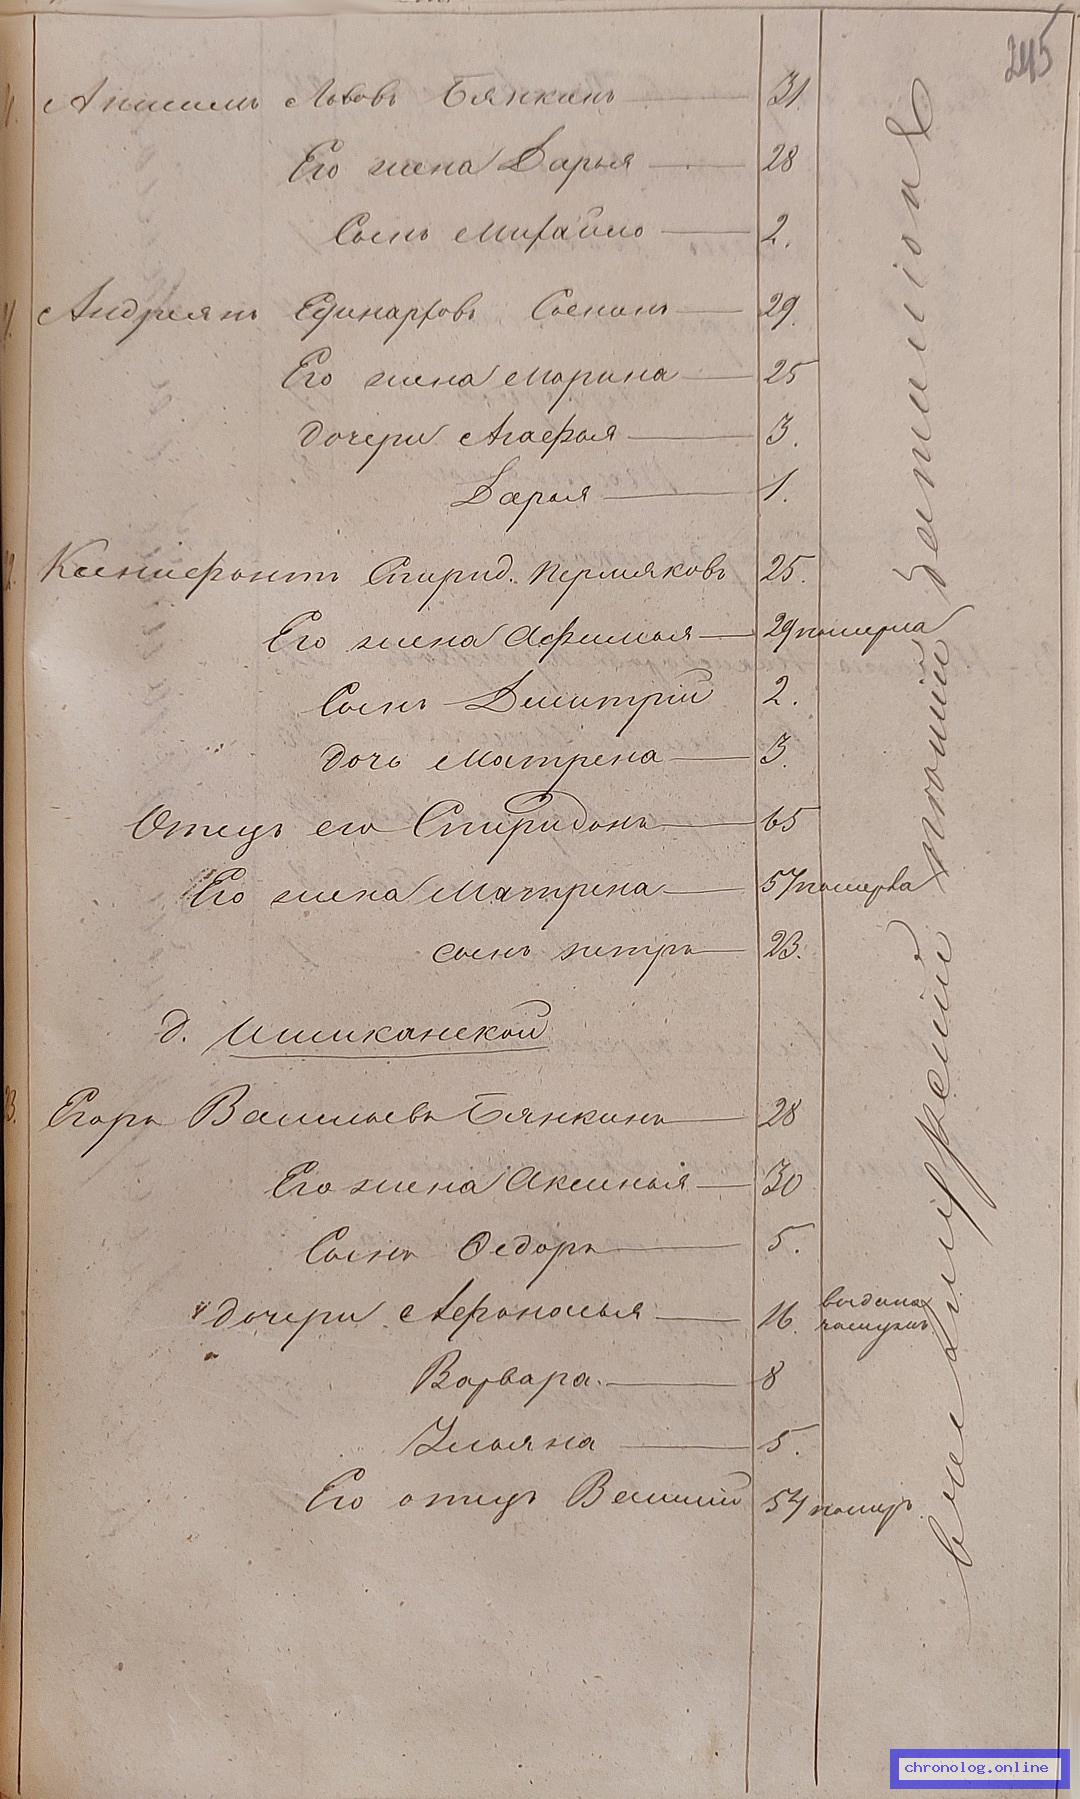 245
Анисимъ Львовъ Бянкинъ 31
Его жена Дарья 28
Сынъ Михайло 2.
Андреянъ Единарховъ Сенинъ 29.
Его жена Марина 25
дочери Агафья 3.
Дарья 1.
Ксенифонтъ Спирид. Пермяковъ 25.
Его жена Афимья 29 померла
Сынъ Дмитрій 2.
дочь Матрена 3.
Отецъ его Спиридонъ 65
Его жена Матрена 57 померла
сынъ петръ 23.
д. Ишиканской
23. Егоръ Васильевъ Бянкинъ 28
Его жена Аксинья 30
Сынъ Федоръ 5.
дочери Афанасья 16. выдана
замужъ
Варвара. 8
Ульяна 5.
Его отецъ Василій 54 померъ
chronolog.online